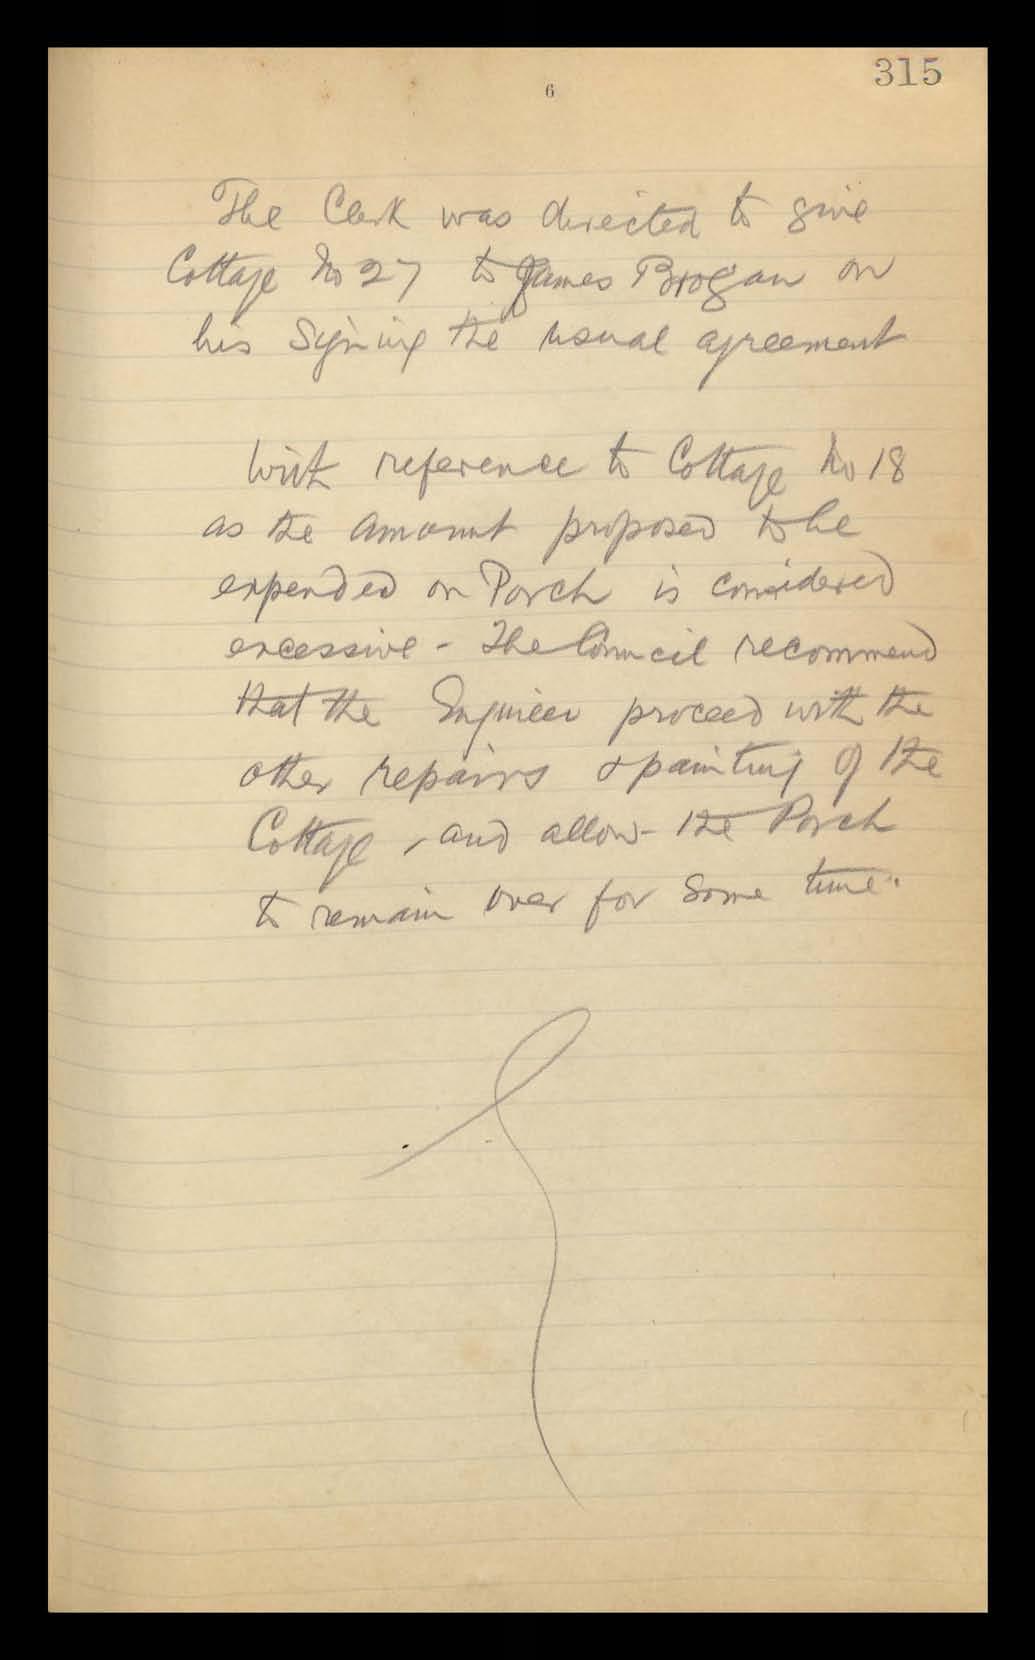 315
6
The Clerk was directed to give
Cottage No 27 to James Brogan on
his Signing the usual agreement
With reference to Cottage No 18
as the amount proposed to be
expended on Porch is considered
excessive - The Council recommend
that the Engineer proceed with the
other repairs & painting of the
Cottage, and allow the Porch
to remain over for some time.